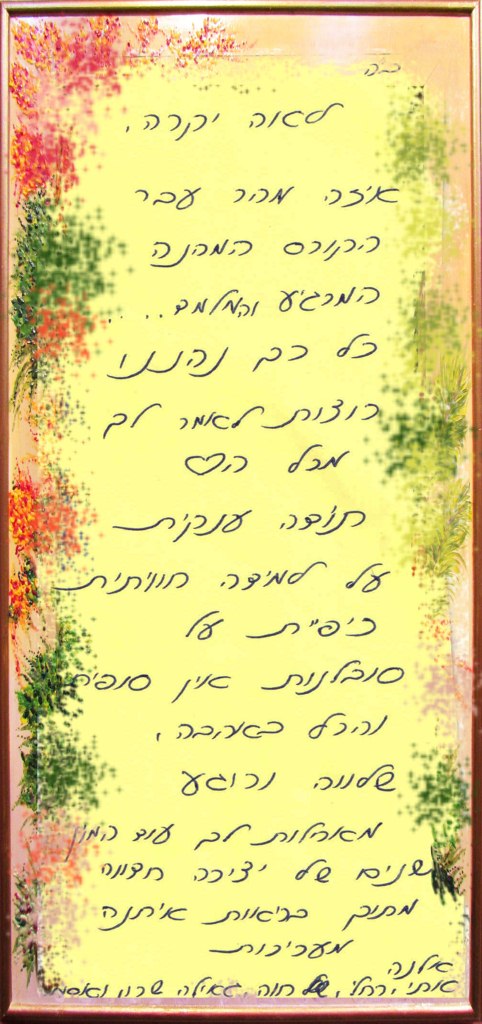 בס"ד
לאוה יקרה,
איזה מהר עבר
הקורס המהנה
המרגיע והמלמד....
כל כך נהננו
רוצות לאמר לך
מכל ה♡
תודה ענקית
על למידה חוויתית
כיפית על
סובלנות אין סופית
והכל באהבה,
שלווה ורוגע
מאחלות לך עוד המון
שנים של יצירה חדווה
מתוך בריאות איתנה
מעריכות
אילנה
אתי, רחלי, חוה, גאילה שרון ואסתי